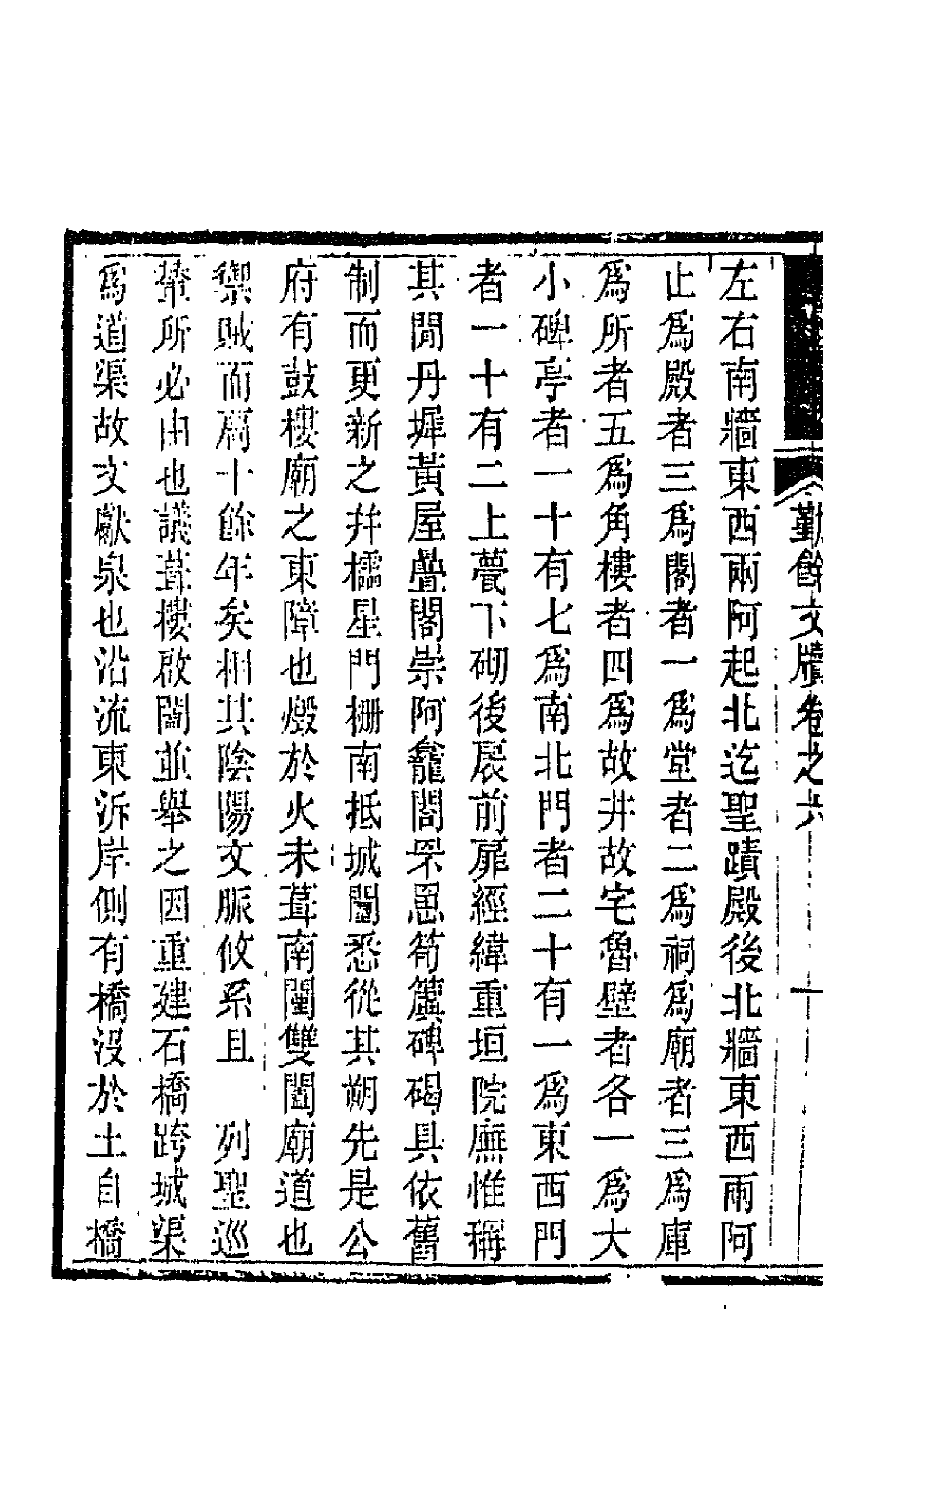 勤餘文牘卷之六
十
左右南牆東西兩阿起北迄聖蹟殿後北牆東西兩阿
止爲殿者三爲閣者一爲堂者二爲祠爲廟者三爲庫
爲所者五爲角樓者四爲故井故宅魯壁者各一爲大
小碑亭者一十有七爲南北門者二十有一爲東西門
者一十有二上甍下砌後扆前扉經緯重垣院廡惟稱
其閒丹墀黃屋疊閣崇阿龕閤罘罳筍簴碑碣具依舊
制而更新之幷櫺星門柵南抵城闉悉從其朔先是公
府有鼓樓廟之東障也燬於火未葺南闉雙闔廟道也
禦賊而扃十餘年矣相其陰陽文脈攸系且　列聖巡
輦所必由也議葺樓啟闔並舉之因重建石橋跨城渠
爲道渠故文獻泉也沿流東泝岸側有橋沒於土自橋